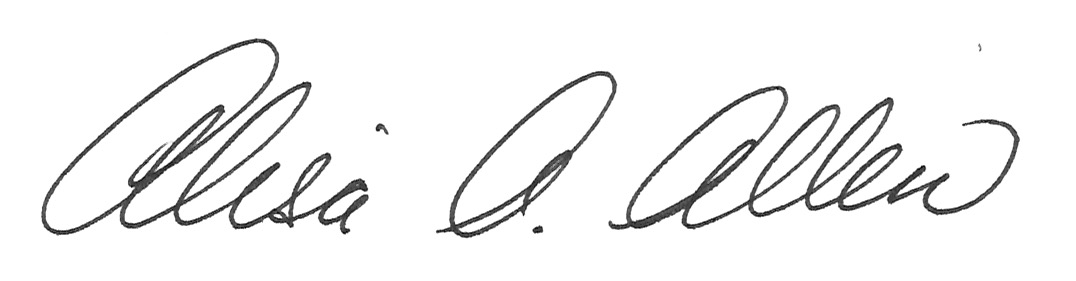 Alisia A. Allen